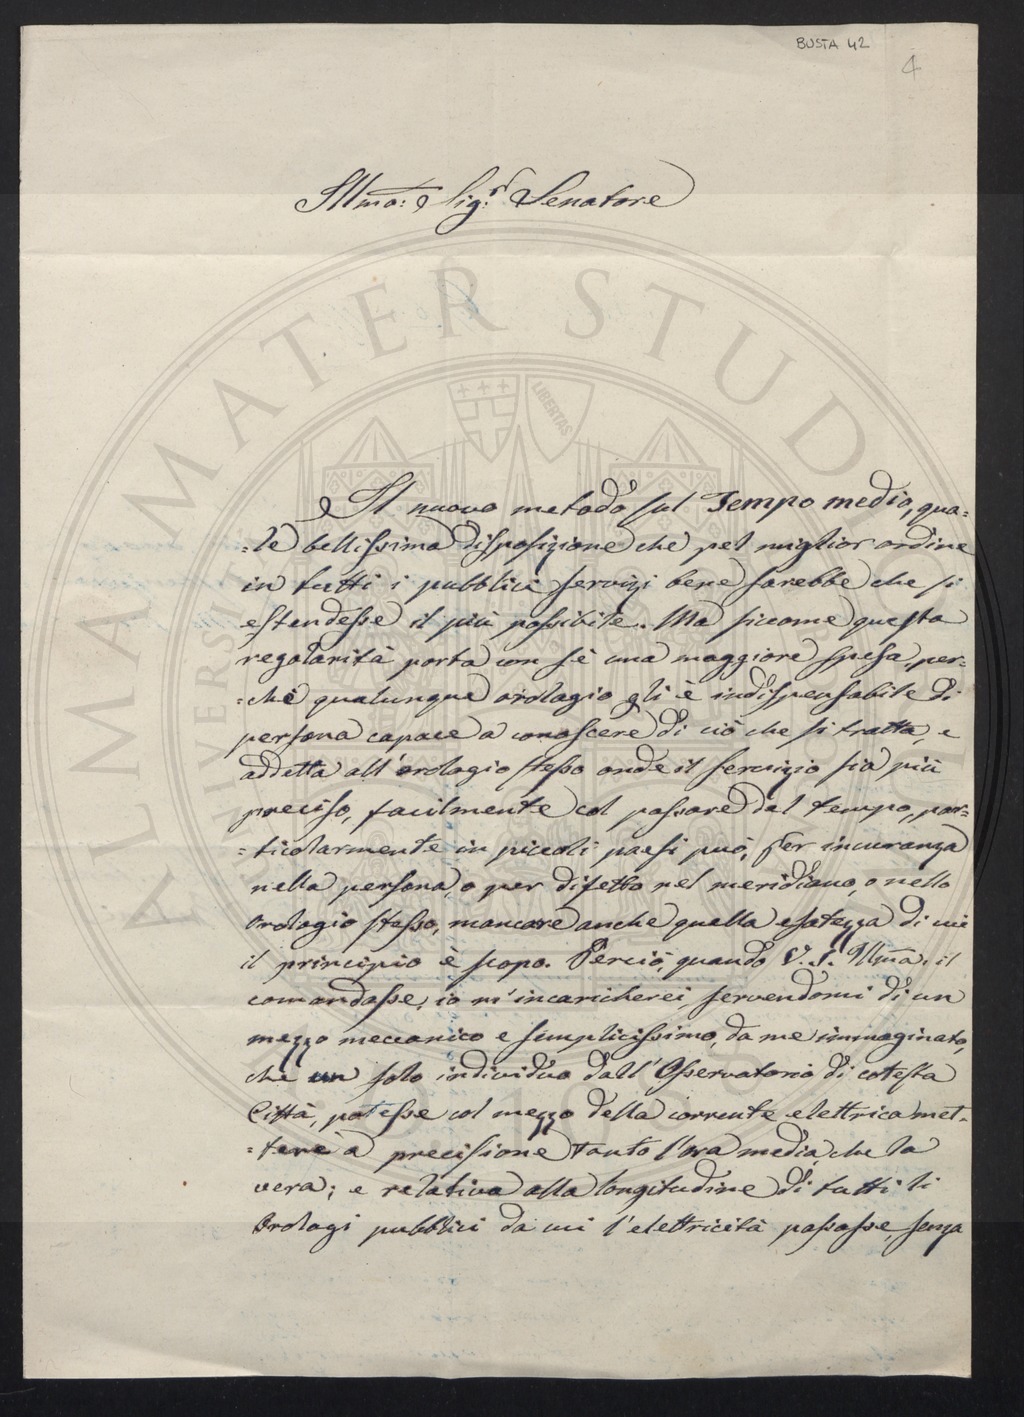 BUSTA 42
4
Illmo: Sigr. Senatore
Il nuovo metodo sul Tempo medio, qua=
=le bellissima disposizione che pel miglior ordine
in tutti i pubblici servizi bene sarebbe che si
estendesse il più possibile. Ma siccome questa
regolarità porta con sè una maggiore spesa, per=
=chè qualunque orologio gli è indispensabile di
persona capace a conoscere di ciò che si tratta, e
addetta all'orologio stesso onde il servizio sia più
preciso, facilmente col passare del tempo, par=
=ticolarmente in piccoli paesi può, per incuranza
nella persona, o per difetto nel meridiano, o nello
Orologio stesso, mancare anche quella esatezza di cui
il principio è scopo. Perciò, quando V. S. Illma. il
comandasse, io m'incaricherei, servendomi di un
mezzo meccanico e semplicissimo, da me immaginato,
che un solo individuo dall'Osservatorio di cotesta
Città, potesse col mezzo della corrente elettrica met=
=tere a precisione tanto l'ora media, che la
vera; e relativa alla longitudine di tutti li
Orologi pubblici da cui l'elettricità passasse, senza
ALMA MATER STUDIORUM
LIBERTAS